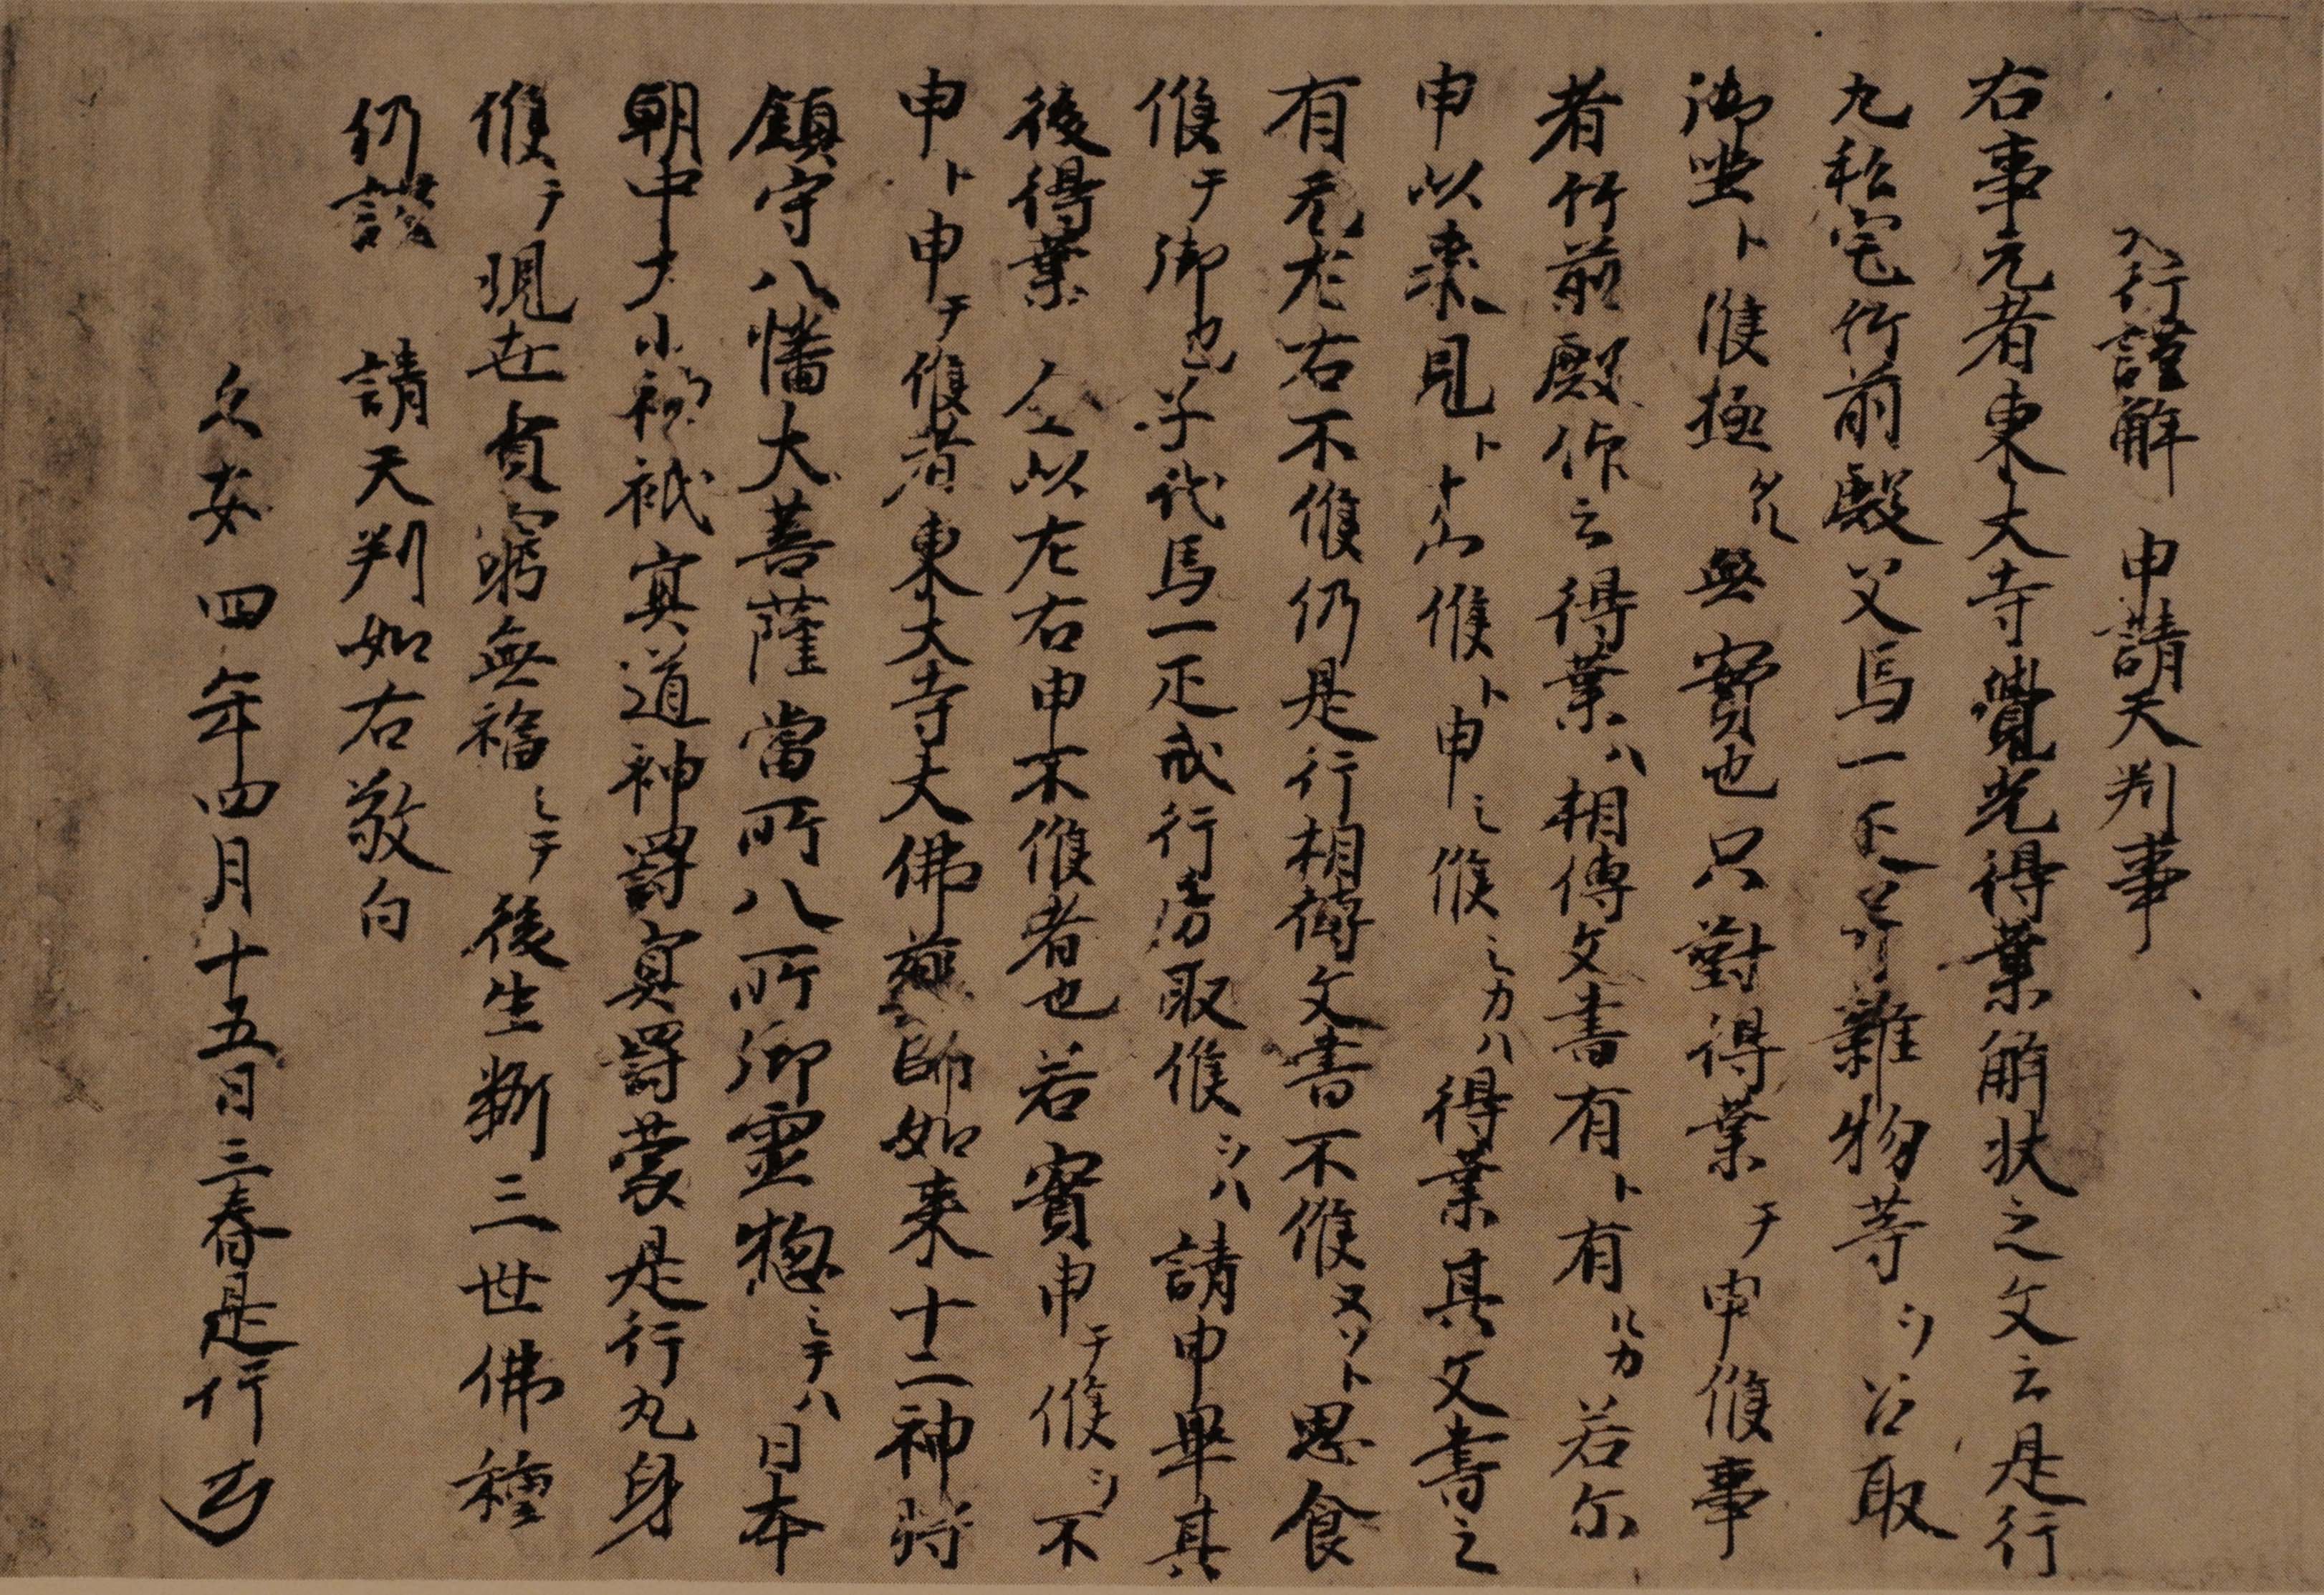 是行謹解 申請天判事
右事元者東大寺覺光得業解状之文云是行
丸私宅竹前殿父馬一疋幷雜物等ヲ召取
御坐ト候極タル無實也只對得業テ申候事
者竹前殿作云得業ハ相傳文書有ト有ルカ若尓
申以来見ト ト候ト申シ候シカハ得業其文書之
有无左右不候仍是行相傳文書不候又ソト思食
候テ御也子代馬一疋武行房取候ヲハ請申畢其
後得業仁以左右申不候者也若實申テ候ヲ不
申ト申テ候者東大寺大佛薬師如来十二神将
鎮守八幡大菩薩當所八所御霊惣シテハ日本
朝中大小神祇冥道神罸冥罸蒙是行丸身
候テ現世貧窮無福シテ後生断三世佛種
仍謹 請天判如右敬白
久安四年四月十五日三春是行